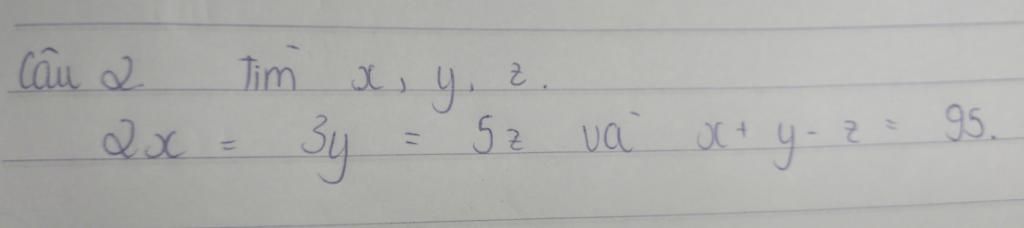 Câu 2 Tìm x, y, z.
2x = 3y = 5z và x + y - z = 95.